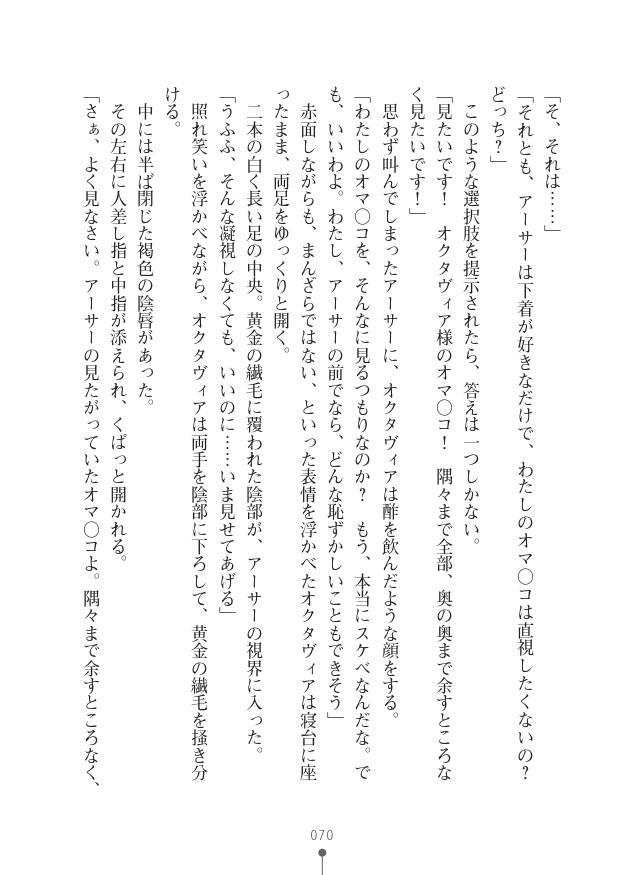 「そ、それは……」
「それとも、アーサーは下着が好きなだけで、わたしのオマ〇コは直視したくないの？
どっち？」
　このような選択肢を提示されたら、答えは一つしかない。
「見たいです！　オクタヴィア様のオマ〇コ！　隅々まで全部、奥の奥まで余すところな
く見たいです！」
　思わず叫んでしまったアーサーに、オクタヴィアは酢を飲んだような顔をする。
「わたしのオマ〇コを、そんなに見るつもりなのか？　もう、本当にスケベなんだな。で
も、いいわよ。わたし、アーサーの前でなら、どんな恥ずかしいこともできそう」
　赤面しながらも、まんざらではない、といった表情を浮かべたオクタヴィアは寝台に座
ったまま、両足をゆっくりと開く。
　二本の白く長い足の中央。黄金の繊毛に覆われた陰部が、アーサーの視界に入った。
「うふふ、そんな凝視しなくても、いいのに……いま見せてあげる」
　照れ笑いを浮かべながら、オクタヴィアは両手を陰部に下ろして、黄金の繊毛を掻き分
ける。
　中には半ば閉じた褐色の陰唇があった。
　その左右に人差し指と中指が添えられ、くぱっと開かれる。
「さぁ、よく見なさい。アーサーの見たがっていたオマ〇コよ。隅々まで余すところなく、
070